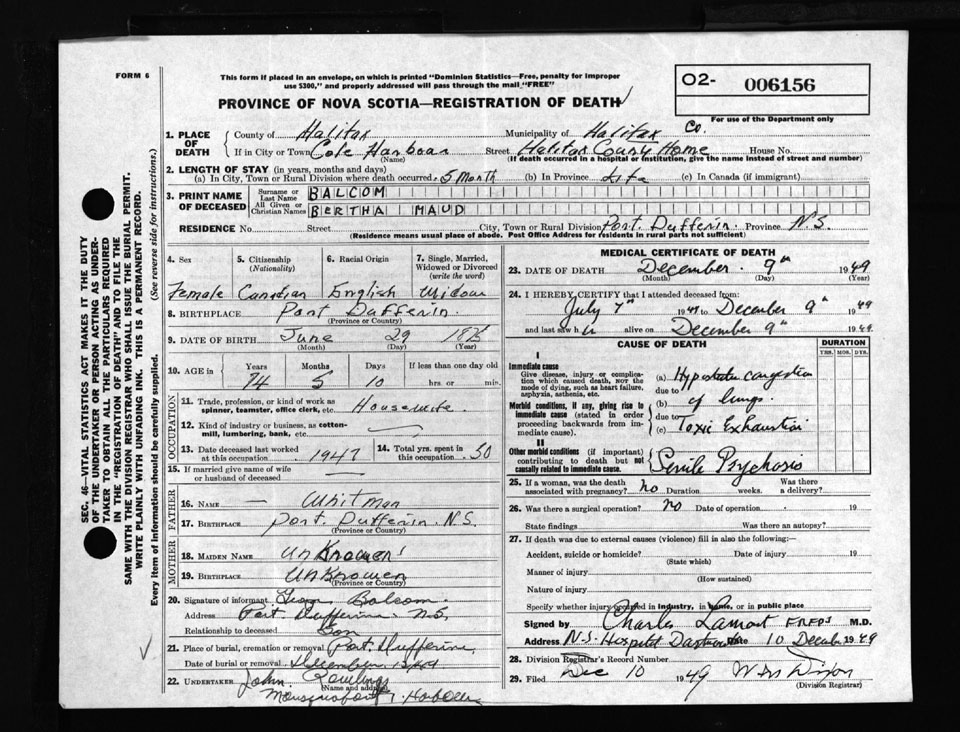 FORM 6
This form if placed in an envelope, on which is printed "Dominion Statistics—Free, penalty for improper
use $300," and properly addressed will pass through the mail "FREE"
O2- 006156
For use of the Department only
PROVINCE OF NOVA SCOTIA—REGISTRATION OF DEATH
1. PLACE OF DEATH
County of Halifax Municipality of Halifax Co.
If in City or Town Cole Harbour Street Halifax County Home House No.
(Name) (If death occurred in a hospital or institution, give the name instead of street and number)
2. LENGTH OF STAY (in years, months and days)
(a) In City, Town or Rural Division where death occurred 5 Month (b) In Province Life (c) In Canada (if immigrant)
3. PRINT NAME OF DECEASED
Surname or Last Name BALCOM
All Given or Christian Names BERTHA MAUD
RESIDENCE No. Street City, Town or Rural Division Port Dufferin. Province N.S.
(Residence means usual place of abode. Post Office Address for residents in rural parts not sufficient)
SEC. 46—VITAL STATISTICS ACT MAKES IT THE DUTY
OF THE UNDERTAKER OR PERSON ACTING AS UNDER-
TAKER TO OBTAIN ALL THE PARTICULARS REQUIRED
IN THE "REGISTRATION OF DEATH" AND TO FILE THE
SAME WITH THE DIVISION REGISTRAR WHO SHALL ISSUE THE BURIAL PERMIT.
WRITE PLAINLY WITH UNFADING INK. THIS IS A PERMANENT RECORD.
Every item of information should be carefully supplied. (See reverse side for instructions.)
4. Sex 5. Citizenship (Nationality) 6. Racial Origin 7. Single, Married, Widowed or Divorced (write the word)
Female Canadian English Widow
8. BIRTHPLACE Port Dufferin.
(Province or Country)
9. DATE OF BIRTH June 29
(Month) (Day) (Year)
10. AGE in Years Months Days If less than one day old
74 5 10 hrs or min.
OCCUPATION
11. Trade, profession, or kind of work as
spinner, teamster, office clerk, etc. Housewife.
12. Kind of industry or business, as cotton-
mill, lumbering, bank, etc.
13. Date deceased last worked
at this occupation 1947
14. Total yrs. spent in
this occupation 50
15. If married give name of wife
or husband of deceased
FATHER
16. NAME — Whitman
17. BIRTHPLACE Port Dufferin. N.S.
(Province or Country)
MOTHER
18. MAIDEN NAME Unknown
19. BIRTHPLACE Unknown
(Province or Country)
20. Signature of informant Balcom.
Address Port Dufferin N.S.
Relationship to deceased Son
21. Place of burial, cremation or removal Port Dufferin,
Date of burial or removal December
22. UNDERTAKER John Rowlings
(Name and address)
MEDICAL CERTIFICATE OF DEATH
23. DATE OF DEATH December. 9th 1949
(Month) (Day) (Year)
24. I HEREBY CERTIFY that I attended deceased from:
July 7th 1949 to December 9th 1949
and last saw her alive on December 9th 1949.
CAUSE OF DEATH
DURATION
YRS. MOS. DYS.
I
Immediate cause
Give disease, injury or complica-
tion which caused death, NOT the
mode of dying, such as heart failure,
asphyxia, asthenia, etc.
(a) Hypostatic congestion
due to of lungs.
Morbid conditions, if any, giving rise to
immediate cause (stated in order
proceeding backwards from im-
mediate cause).
due to
(c) Toxic Exhaustion
II
Other morbid conditions (if important)
contributing to death but not
causally related to immediate cause.
Senile Psychosis
25. If a woman, was the death
associated with pregnancy? No Duration weeks. Was there
a delivery?
26. Was there a surgical operation? No Date of operation 19
State findings Was there an autopsy?
27. If death was due to external causes (violence) fill in also the following:—
Accident, suicide or homicide? Date of injury 19
(State which)
Manner of injury
(How sustained)
Nature of injury
Specify whether injury occurred in industry, in home, or in public place
Signed by Charles Lamont M.D.
Address N.S. Hospital Dartmouth Date 10 Decemb 1949
28. Division Registrar's Record Number
29. Filed Dec 10 1949 Dixon
(Division Registrar)